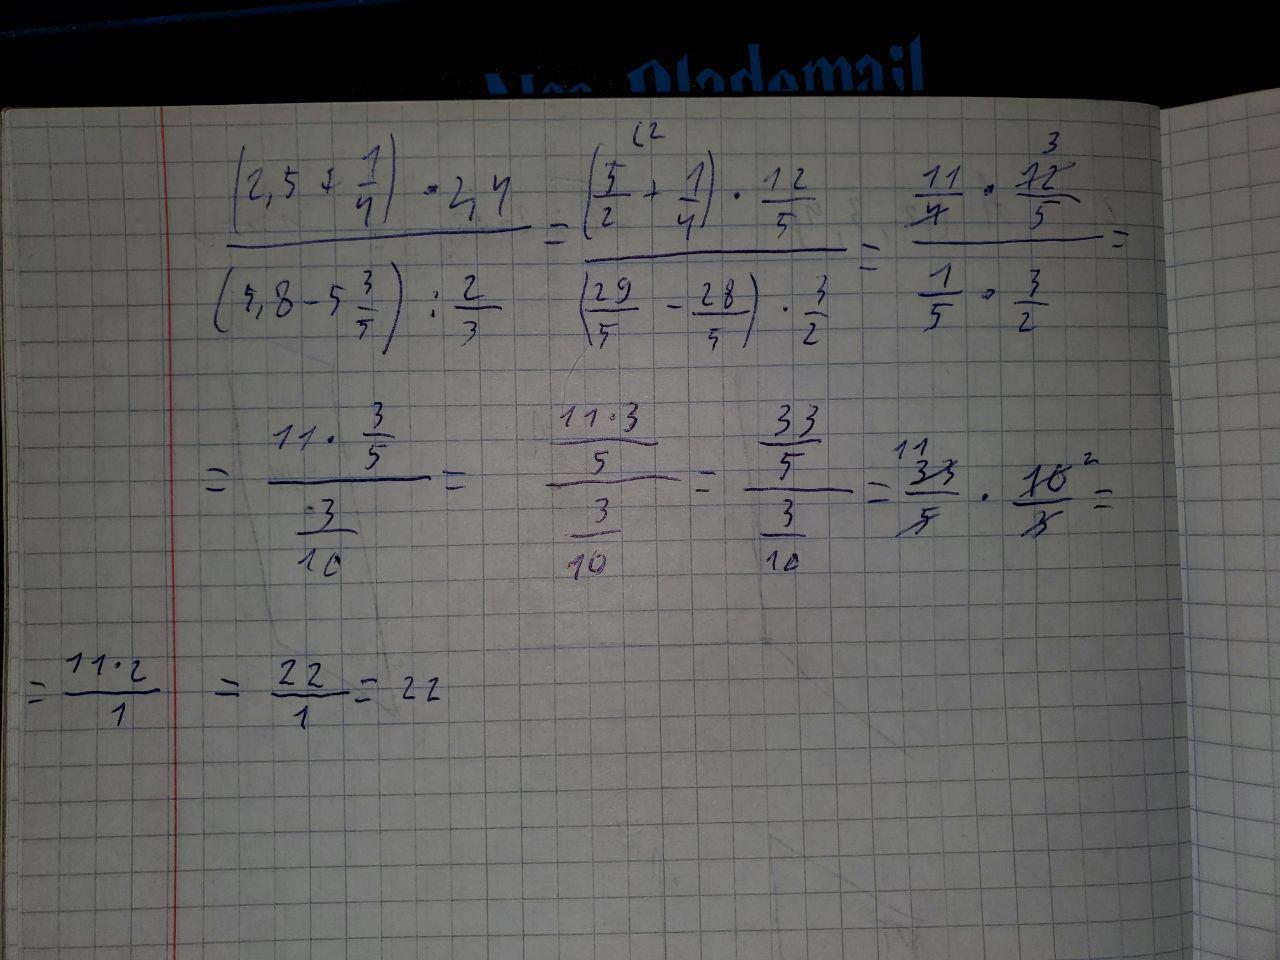 (2,5 + 1/4) · 2,4 / (5,8 - 5 3/5) : 2/3 = (5/2 + 1/4) · 12/5 / (29/5 - 28/5) · 3/2 = 11/4 · 12/5 / 1/5 · 3/2 =
= 11 · 3/5 / 3/10 = 11·3/5 / 3/10 = 33/5 / 3/10 = 33/5 · 10/3 =
= 11·2/1 = 22/1 = 22